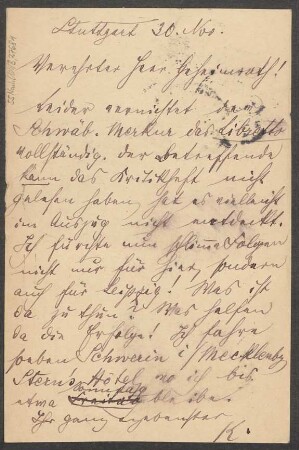 Stuttgart 30. Nov.
Verehrter Herr Geheimrath!
Leider vernichtet der
Schwäb. Merkur das Libretto
vollständig. der betreffende
kann das Kritikheft nicht
gelesen haben, hat es vielleicht
im Auszug nicht entdeckt.
Ich fürchte nun schlimme Folgen
nicht nur für hier, sondern
auch für Leipzig! Was ist
da zu thun? Was helfen
da die Erfolge! Ich fahre
soeben Schwerin i/Mecklenbg
Stern's Hôtel, wo ich bis
etwa Sonntag bleibe.
Ihr ganz ergebenster
K.